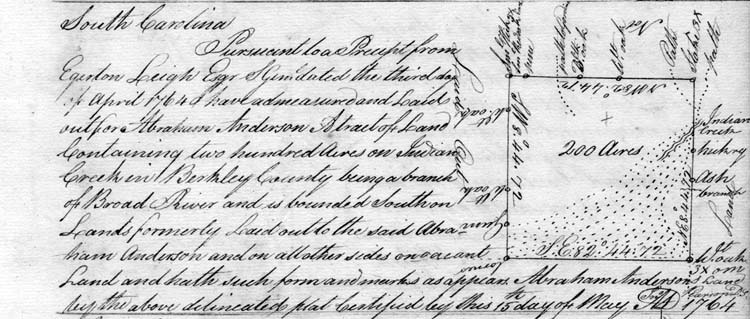 South Carolina
Pursuant to a Precept from
Egerton Leigh Esqr S Genl dated the third day
of April 1764 I have admeasured and Laid
out for Abraham Anderson A tract of Land
Containing two hundred Acres on Indian
Creek in Berkley County being a branch
of Broad River and is bounded South on
Lands formerly Laid out to the said Abra-
ham Anderson and on all other sides on vacant
Land and hath such form and marks as appears
by the above delineated plat Certified by this 15th day of May 1764
200 Acres
NW 82° 44.72
SE 82° 44.72
Indian
Creek
hickry
Ash
branch
path
Stake 3X
W Oak
3X
Abraham Anderson's Land